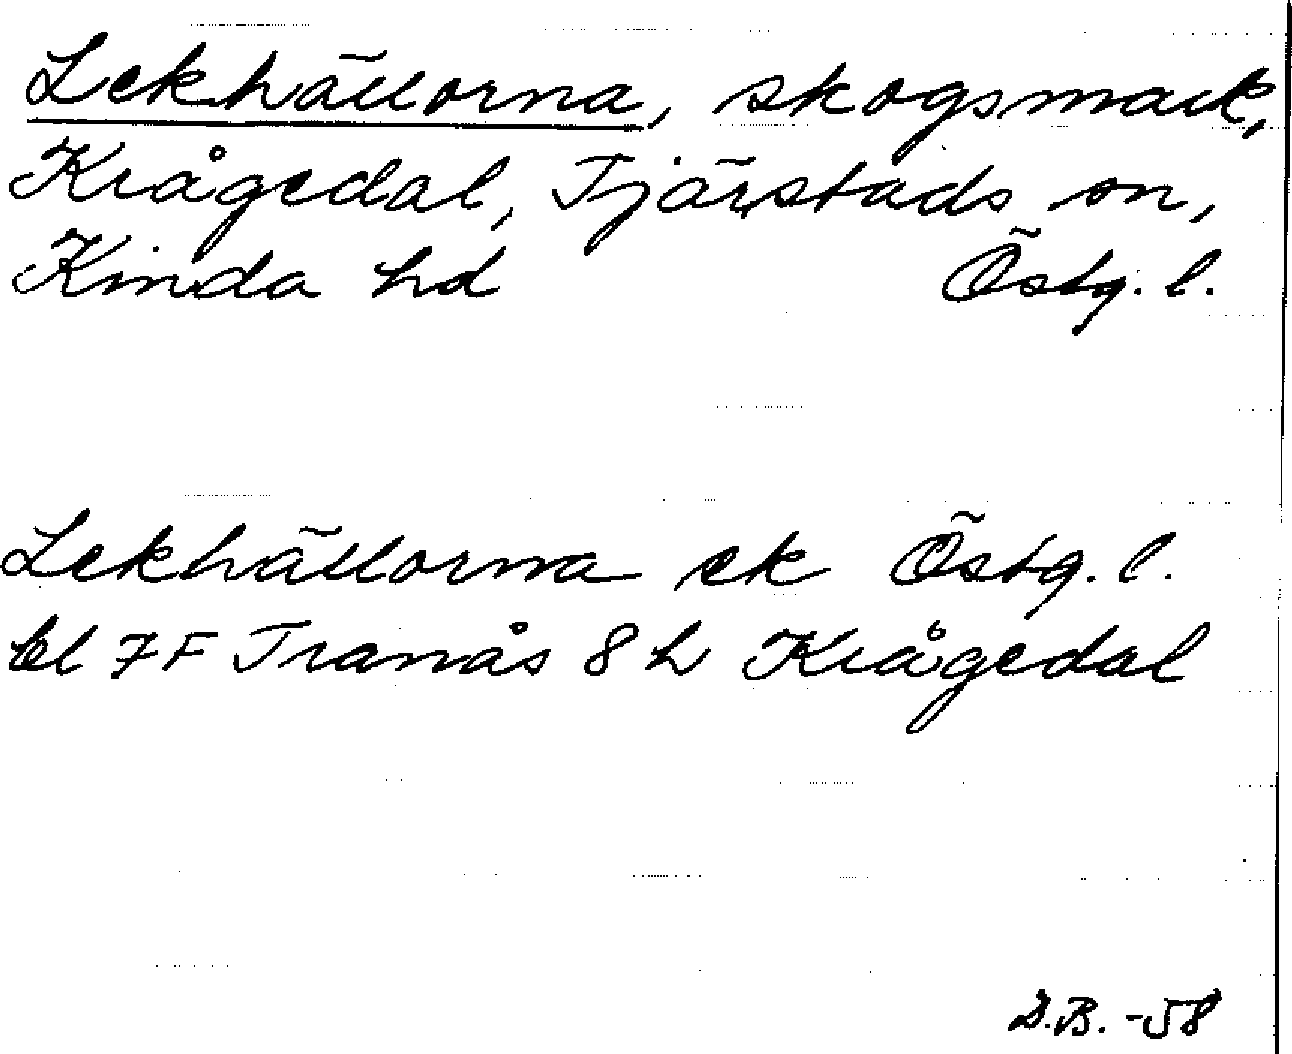 Lekhällorna, skogsmark,
Krågedal, Tjärstads sn,
Kinda hd Östg. l.
Lekhällorna ek Östg. l.
bl 7F Tranås 8 h Krågedal
D.B. -58